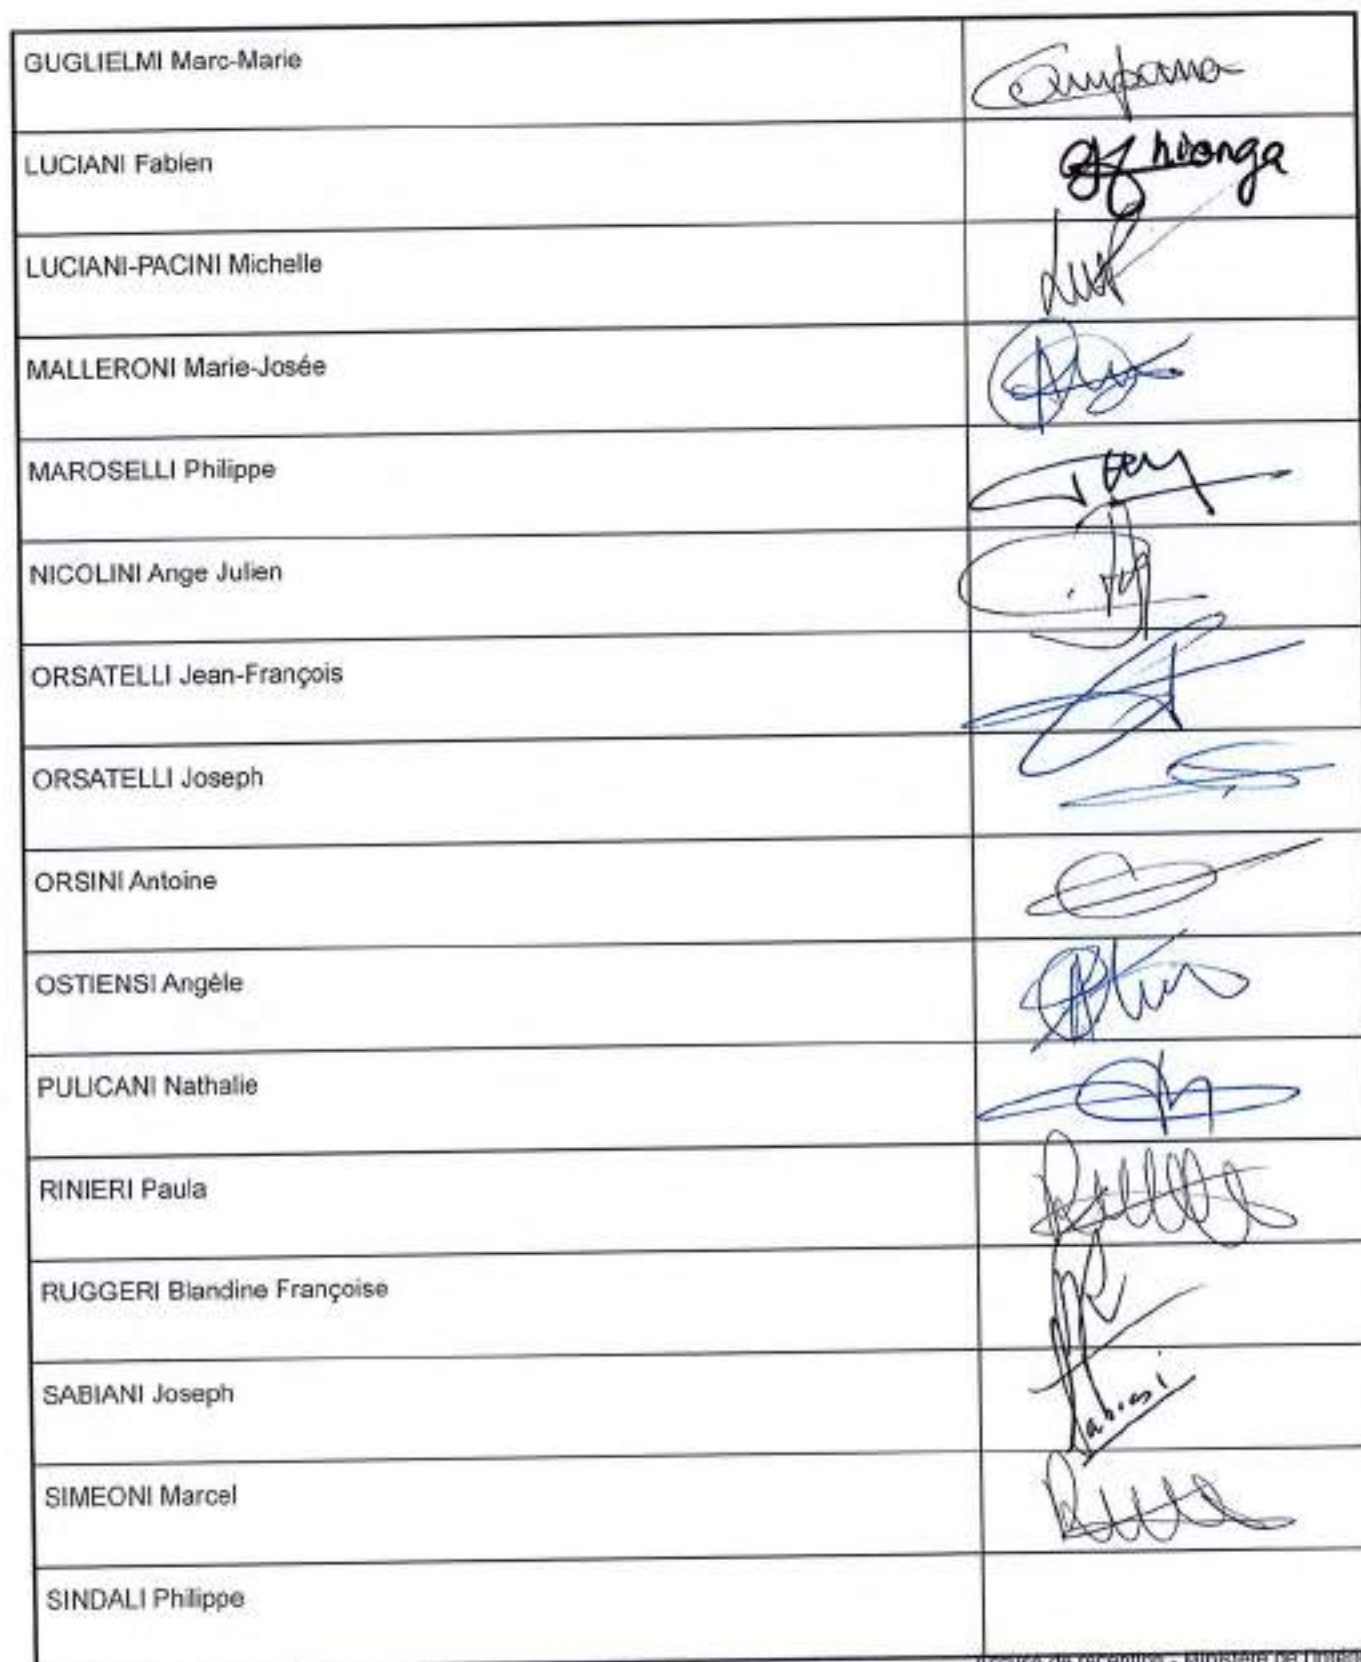 GUGLIELMI Marc-Marie
Campana
LUCIANI Fabien
LUCIANI-PACINI Michelle
MALLERONI Marie-Josée
MAROSELLI Philippe
NICOLINI Ange Julien
ORSATELLI Jean-François
ORSATELLI Joseph
ORSINI Antoine
OSTIENSI Angèle
PULICANI Nathalie
RINIERI Paula
RUGGERI Blandine Françoise
SABIANI Joseph
SIMEONI Marcel
SINDALI Philippe
Accusé de réception - Ministère de l'Intér